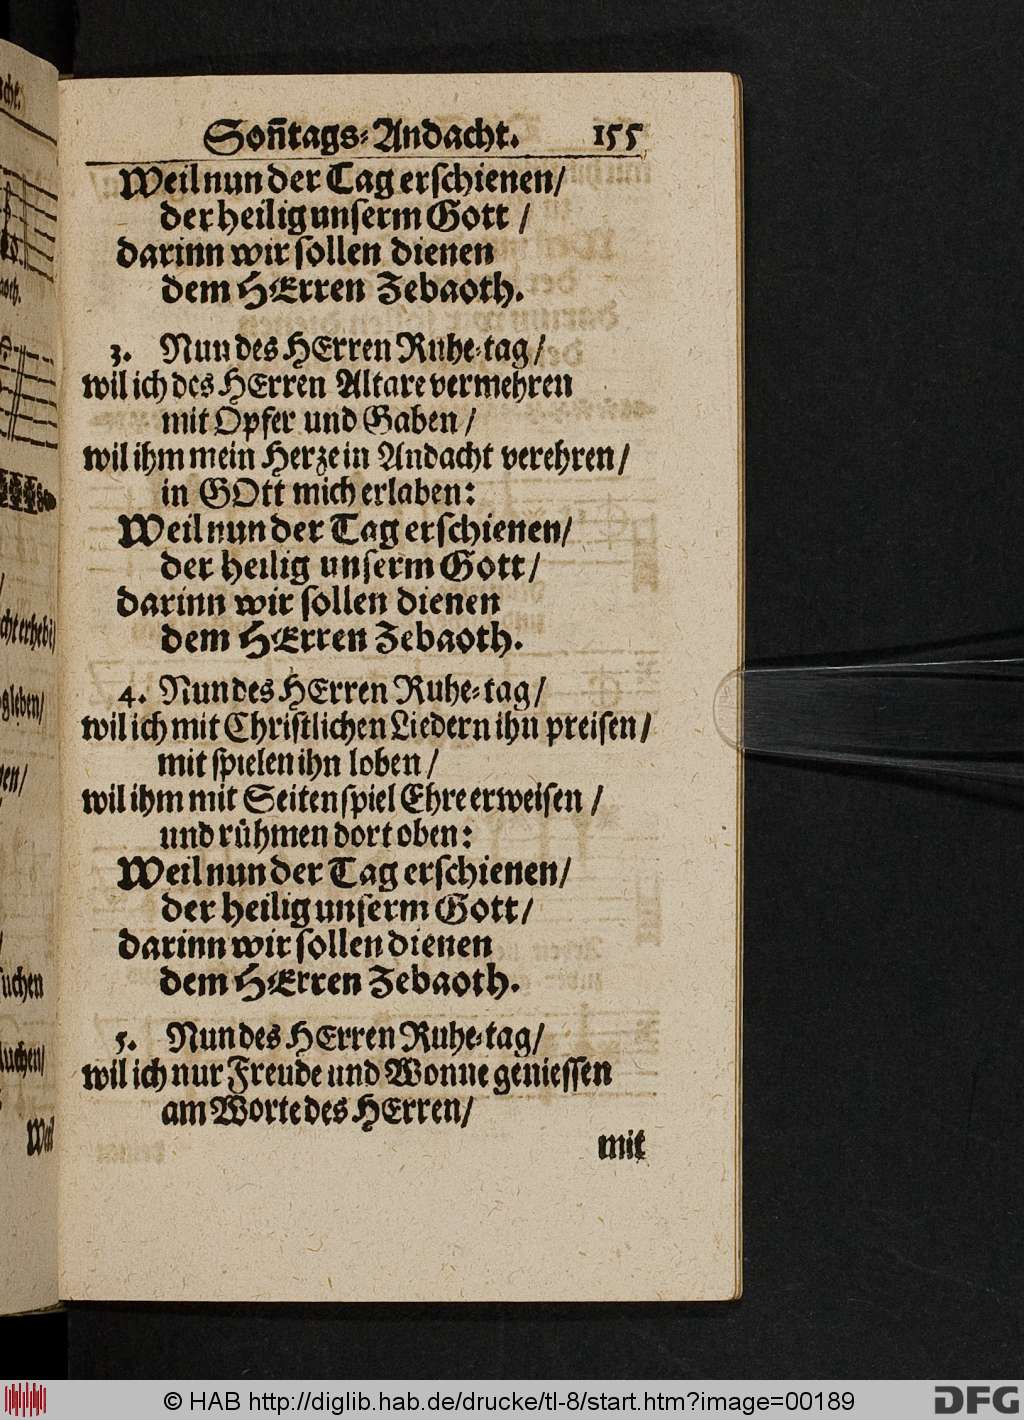 Soñtags-Andacht. 155
Weil nun der Tag erschienen/
der heilig unserm Gott /
darinn wir sollen dienen
dem HErren Zebaoth.
3. Nun des HErren Ruhe-tag /
wil ich des HErren Altare vermehren
mit Opfer und Gaben /
wil ihm mein Herze in Andacht verehren /
in GOtt mich erlaben:
Weil nun der Tag erschienen/
der heilig unserm Gott /
darinn wir sollen dienen
dem HErren Zebaoth.
4. Nun des HErren Ruhe-tag /
wil ich mit Christlichen Liedern ihn preisen /
mit spielen ihn loben /
wil ihm mit Seitenspiel Ehre erweisen /
und rühmen dort oben:
Weil nun der Tag erschienen/
der heilig unserm Gott /
darinn wir sollen dienen
dem HErren Zebaoth.
5. Nun des HErren Ruhe-tag /
wil ich nur Freude und Wonne geniessen
am Worte des HErren /
mit
© HAB http://diglib.hab.de/drucke/tl-8/start.htm?image=00189
DFG